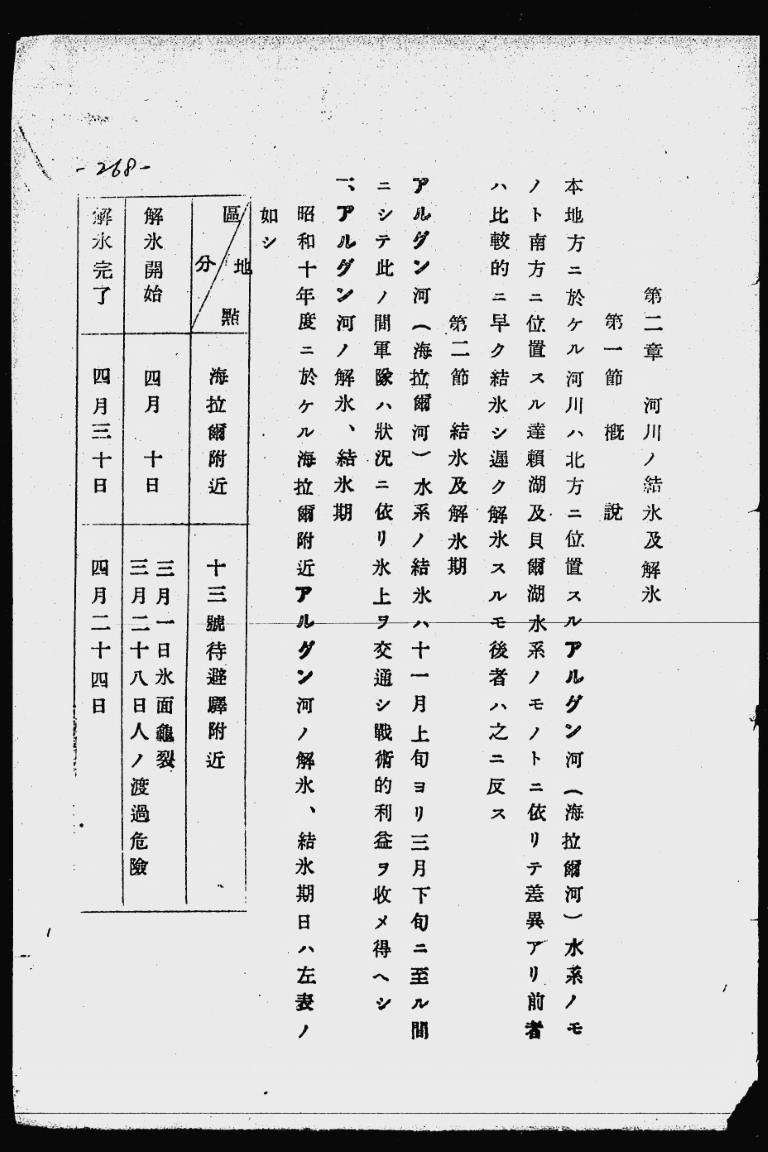 第二章　河川ノ結氷及解氷
第一節　概　說
本地方ニ於ケル河川ハ北方ニ位置スルアルグン河（海拉爾河）水系ノモ
ノト南方ニ位置スル達賴湖及貝爾湖水系ノモノトニ依リテ差異アリ前者
ハ比較的ニ早ク結氷シ遲ク解氷スルモ後者ハ之ニ反ス
第二節　結氷及解氷期
アルグン河（海拉爾河）水系ノ結氷ハ十一月上旬ヨリ三月下旬ニ至ル間
ニシテ此ノ間軍隊ハ狀況ニ依リ氷上ヲ交通シ戰術的利益ヲ收メ得ヘシ
一、アルグン河ノ解氷、結氷期
昭和十年度ニ於ケル海拉爾附近アルグン河ノ解氷、結氷期日ハ左表ノ
如シ
區分　地點
海拉爾附近
十三號待避驛附近
解氷開始
四月　十日
三月一日氷面龜裂
三月二十八日人ノ渡過危險
解氷完了
四月三十日
四月二十四日
-268-